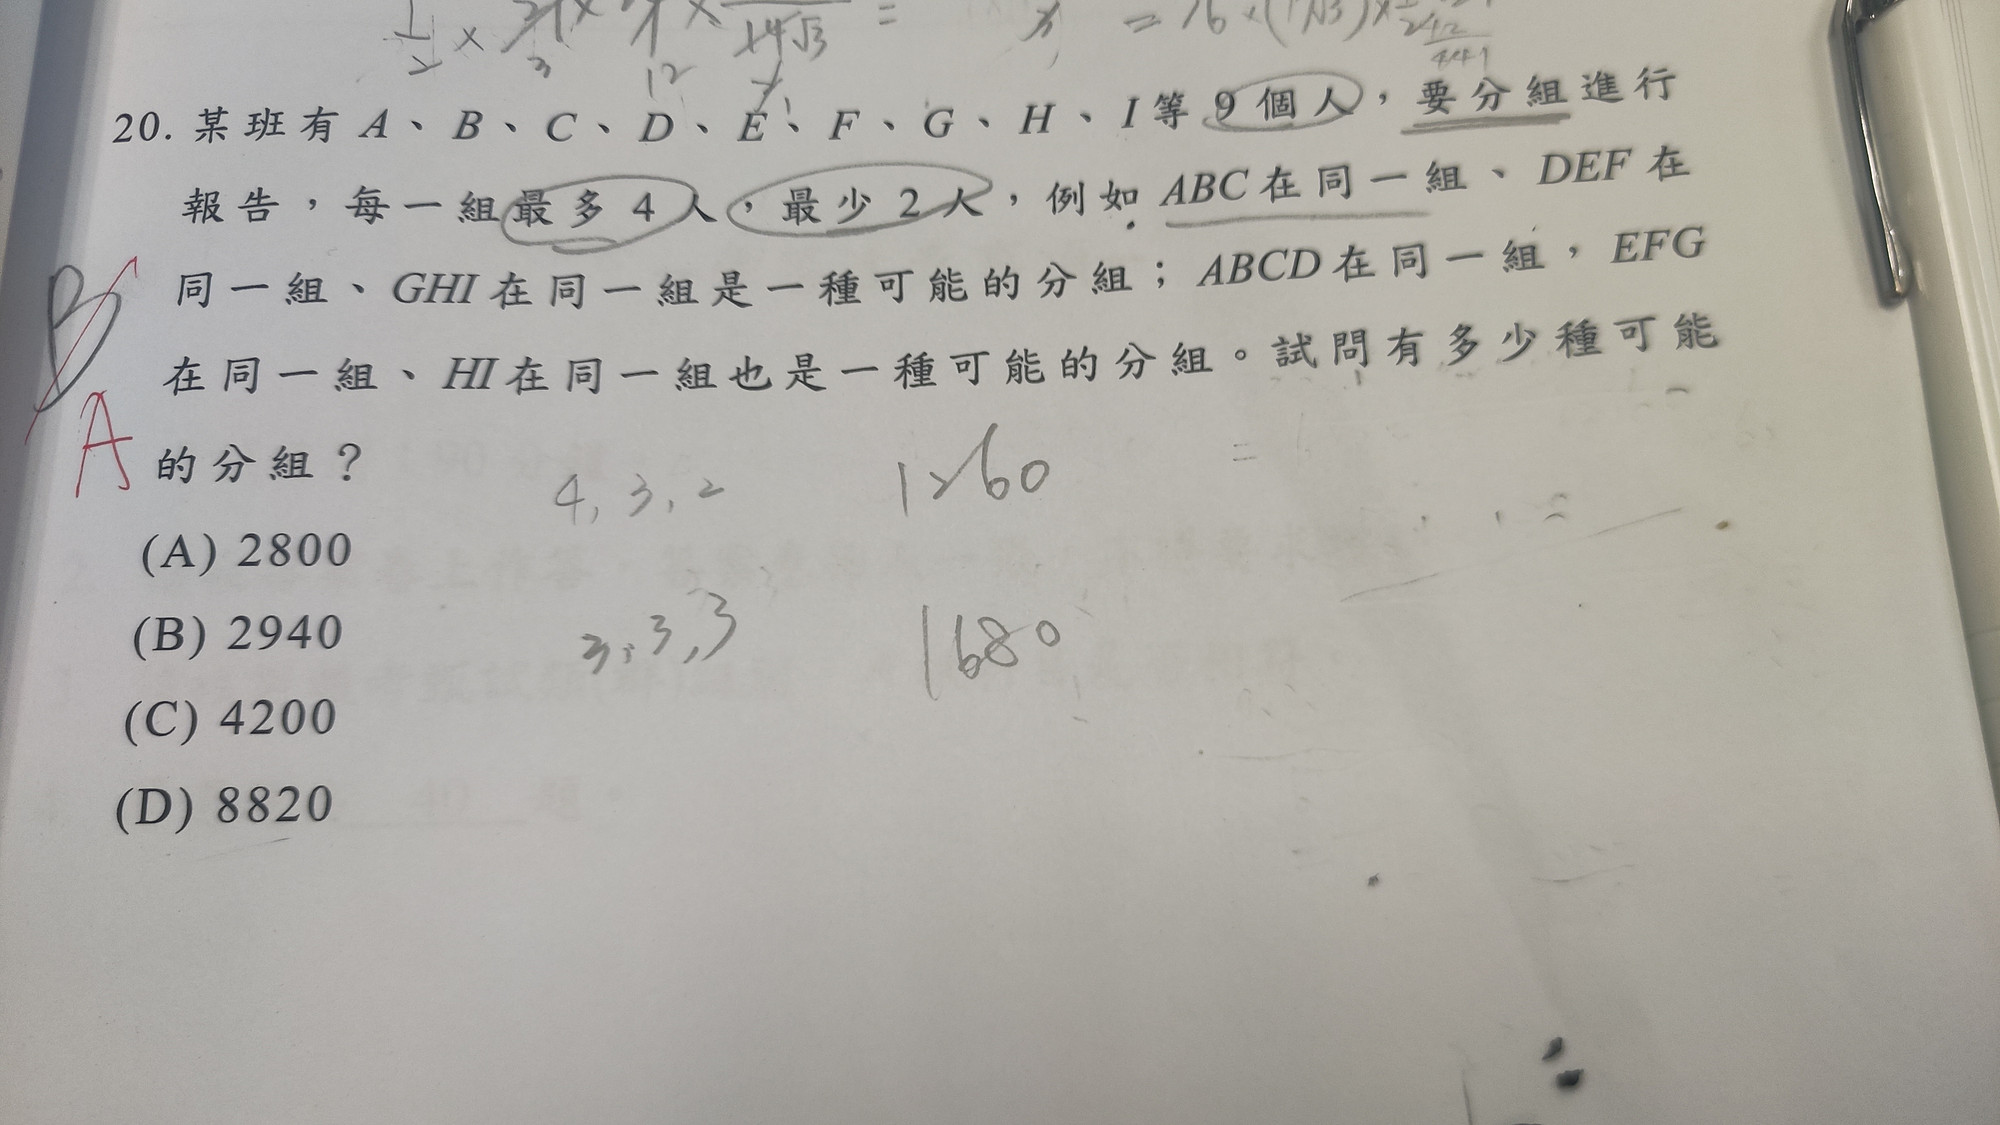 20. 某班有 A、B、C、D、E、F、G、H、I等 9 個人，要分組進行
報告，每一組最多 4 人，最少 2 人，例如 ABC 在同一組、DEF 在
同一組、GHI 在同一組是一種可能的分組；ABCD 在同一組，EFG
在同一組、HI 在同一組也是一種可能的分組。試問有多少種可能
的分組？
B
A
4, 3, 2
1260
(A) 2800
(B) 2940
3, 3, 3
1680
(C) 4200
(D) 8820